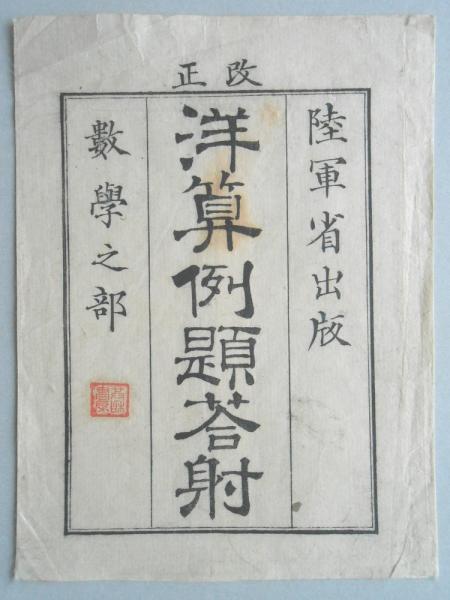 改正
陸軍省出版
洋算例題荅射
數學之部